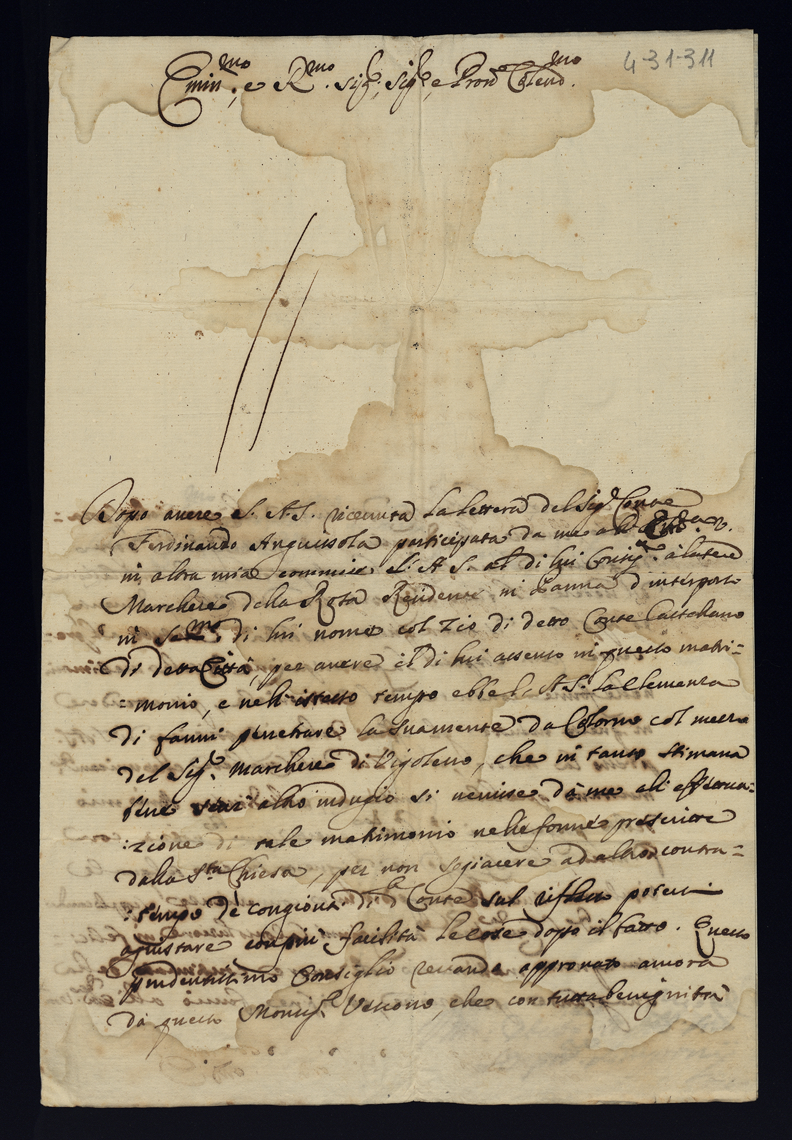 4-31-311
Emin.mo, e R.mo Sig.r, Sig.r, e Pron Colend.mo
Dopo avere S. A. S. ricevuta la lettera del Sig.r Conte
Ferdinando Anguissola participata da me all'
in altra mia commise l'A. S. al di lui Consig.re à latere
Marchese della Rosa Residente in Parma d'interporsi
in Ser.mo di lui nome col Zio di detto Conte Castellano
di detta Città, per avere il di lui assenso in questo matri=
=monio, e nell'istesso tempo ebbe la A. S. la Clemenza
di farmi penetrare la sua mente da Colorno col mezzo
del Sig.r Marchese di Vigoleno, che in tanto stimava
bene senz'altro indugio si venisse da me all'effettua=
:zione di tale matrimonio nelle forme prescritte
dalla S.ta Chiesa, per non sogiacere ad altro contra=
:tempo de congionti del Conte sul riflesso potersi
agiustare con più facilità le cose dopo il fatto. Questo
prudentissimo Consiglio restando approvato ancora
da questo Monsig.r Vescovo, che con tutta benignità